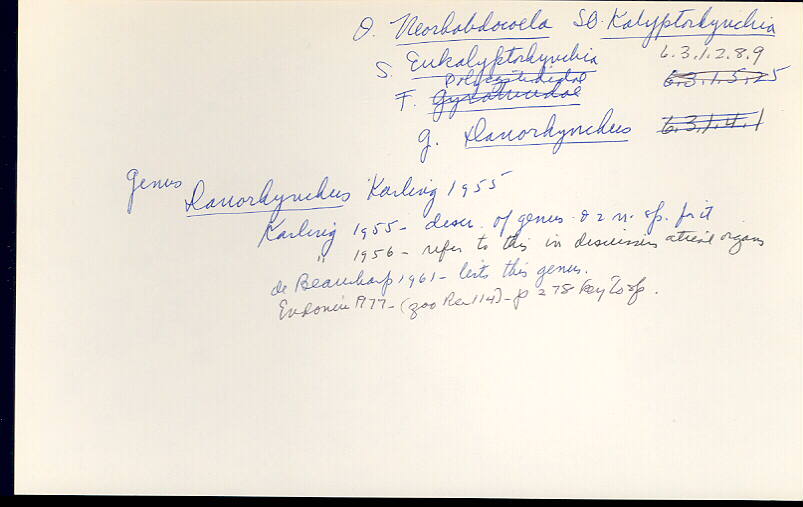 O. Neorhabdocoela SO. Kalyptorhynchia
S. Eukalyptorhynchia 6.3.1.2.8.9
Polycystididae 6.3.1.5.25
F. Gyratricidae
G. Danorhynchus 6.3.1.4.1
Genus
Danorhynchus Karling 1955
Karling 1955 - descr. of genus & 2 n. sp. for it
" 1956 - refer to this in discussion atrial organs
de Beauchamp 1961 - lists this genus.
Evdonin 1977 - (Zoo Rec 114) - p 278 Key to sp.